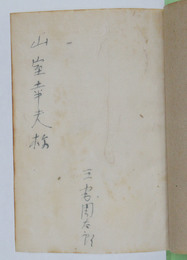 山室幸夫様
三宅周太郎